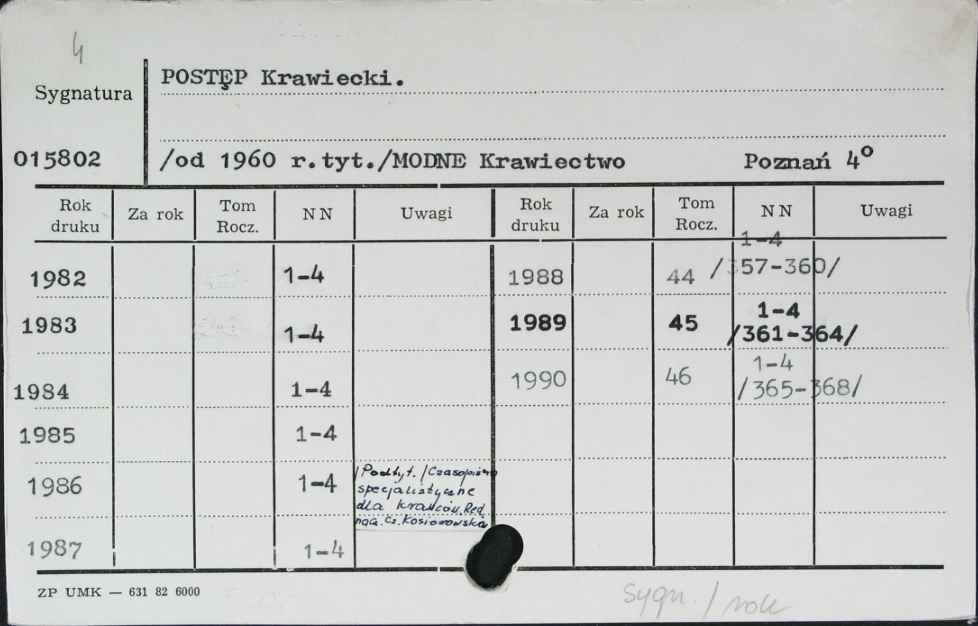 4
Sygnatura
POSTĘP Krawiecki.
015802
/od 1960 r.tyt./MODNE Krawiectwo Poznań 4º
Rok druku Za rok Tom Rocz. NN Uwagi Rok druku Za rok Tom Rocz. NN Uwagi
1982 1-4 1988 44 1-4 /357-360/
1983 1-4 1989 45 1-4 /361-364/
1984 1-4 1990 46 1-4 /365-368/
1985 1-4
1986 1-4
/Podtyt./Czasopismo
specjalistyczne
dla krawców. Red.
nacz. Cz. Kosiorowska
1987 1-4
ZP UMK — 631 82 6000
sygn. / rok